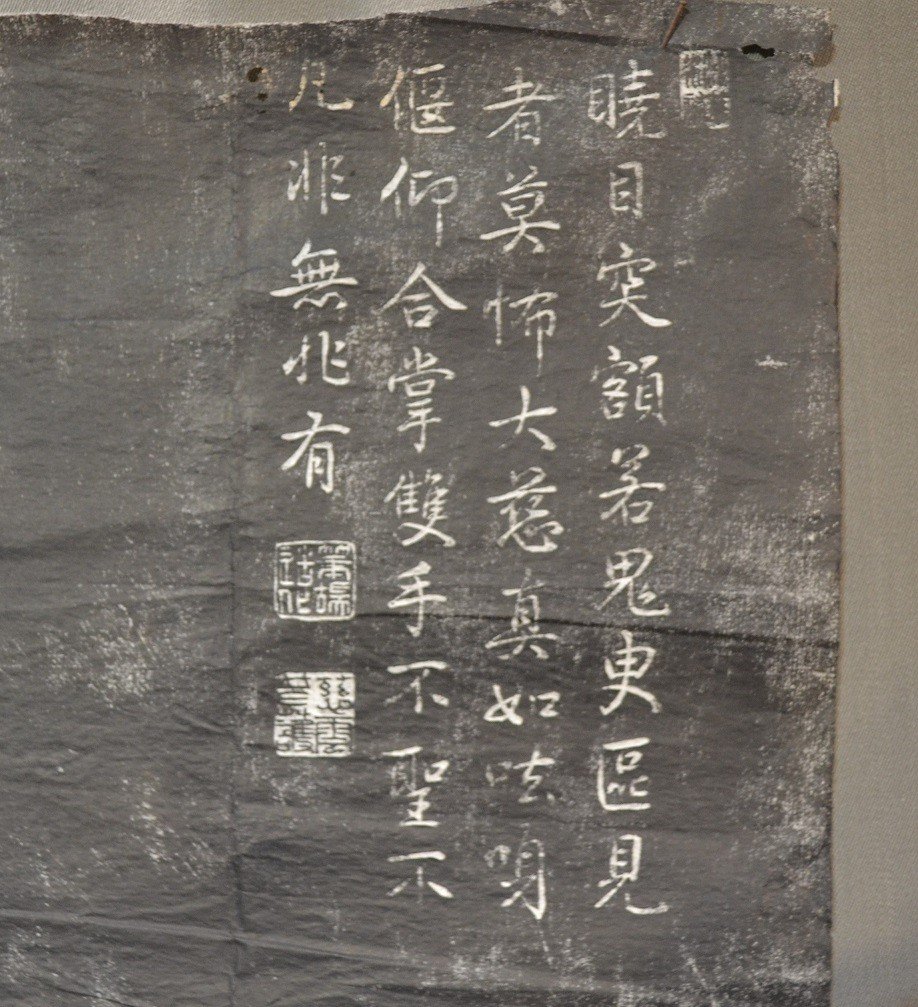 曉目突額若鬼臾區見
者莫怖大慈真如呿
偃仰合掌雙手不聖不
凡非無非有